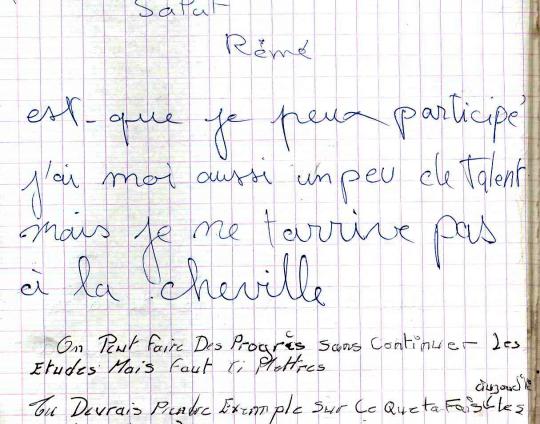 Salut
Rémé
est-que je peux participé
j'ai moi aussi un peu de Talent
mais je ne t'arrive pas
à la cheville
On Peut Faire Des Progrès sans Continuer Les
Etudes Mais Faut Ti Mettres
aujourd'
Tu Devrais Prendre Exemple Sur Ce Que ta Fais les